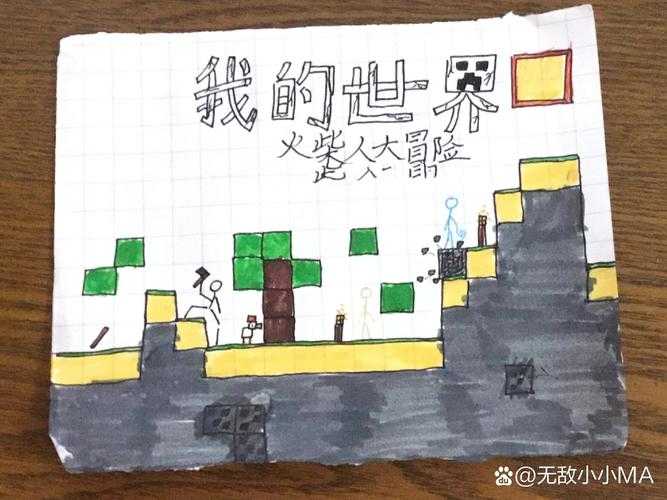 我的世界
火柴人大冒险
@无敌小小MA